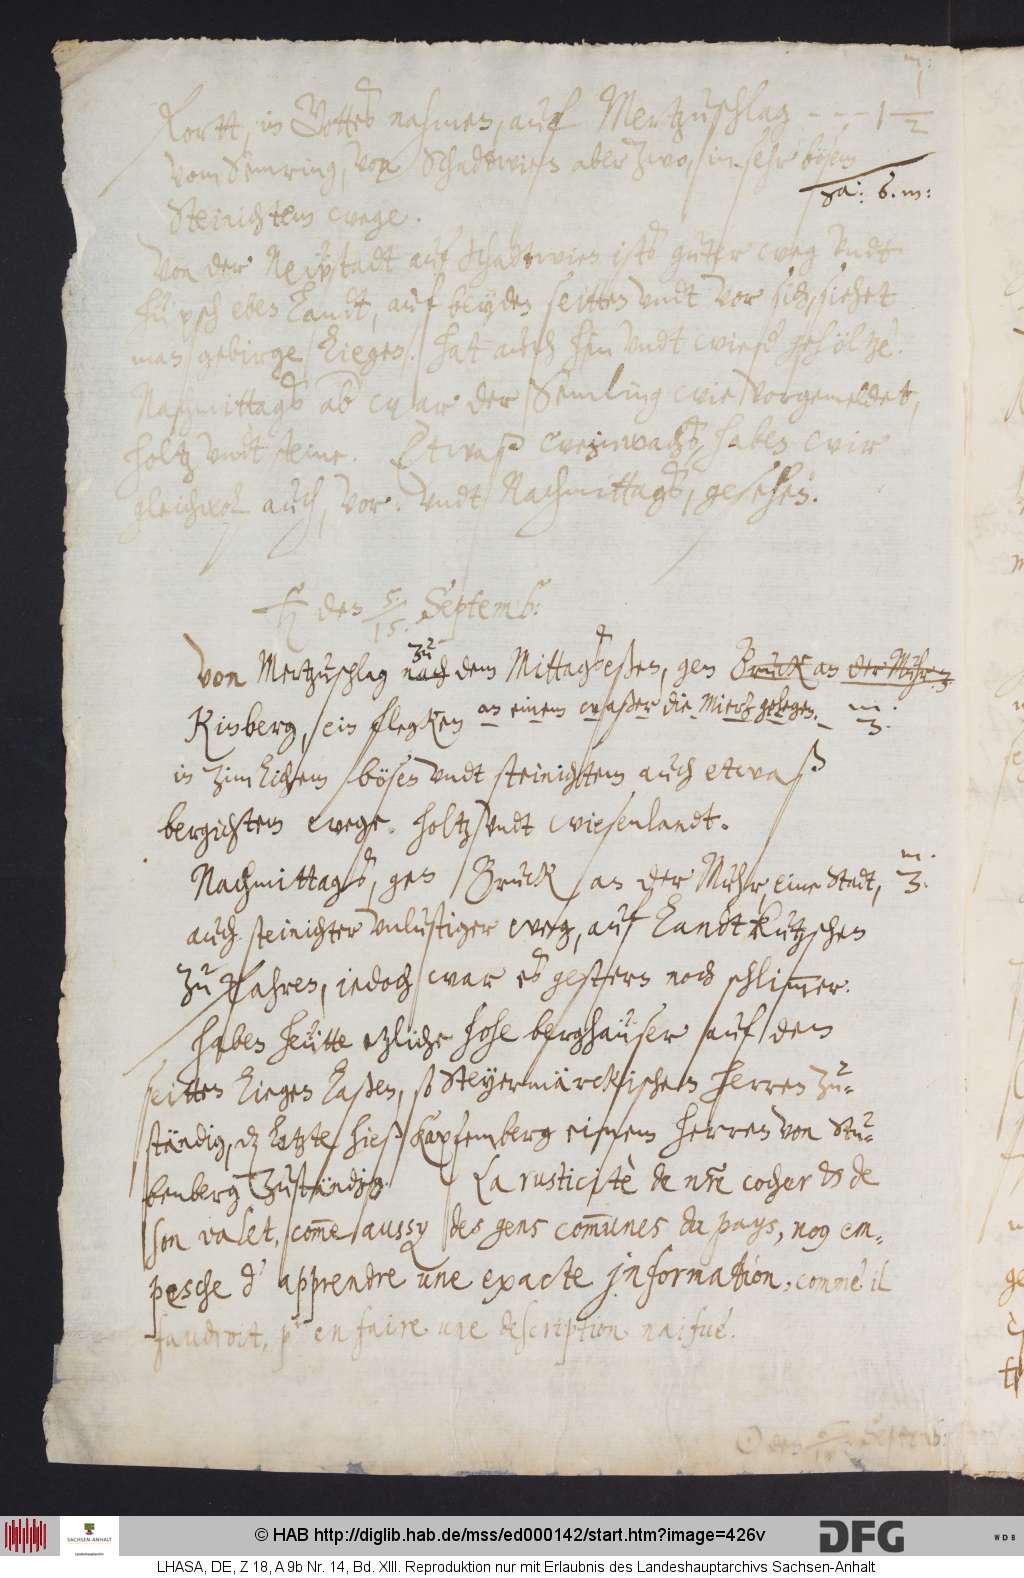 m:
Fortt, in Gottes nahmen, auf Mertzuschlag - - - 1 1/2
vom Semring, von Schadtwien aber zwo, in sehr bösem
Sa: 6. m:
steinichtem wege.
Von der Neustadt auf Schadtwien ists guter weg vndt
hüpsch eben landt, auf beyden seitten vndt vor sich, siehet
man gebirge liegen. hat auch hin vndt wied gehöltze.
Nachmittags ab war der Semling wie vorgemeldet,
holtz vndt steine. Etwaß weinwachß haben wir
gleichwol auch, vor: vndt Nachmittags, gesehen.
♄ den 5./15. Septemb:
Von Mertzuschlag nach zu dem Mittagseßen, gen Bruck an der Muhr. 3
Kinberg, ein flecken an einem waßer die Mierz gelegen. m: 3.
in zimlichem bösen vndt steinichtem auch etwaß
bergichtem wege. holtz vndt wiesenlandt.
Nachmittags, gen Bruck an der Muhr, eine Stadt, m. 3.
auch steinichter vnlustiger weg, auf landtkutzschen
zu fahren, iedoch war es gestern noch schlim̅er.
haben heütte etzliche hohe berghaüser auf den
seitten liegen laßen, so Steyermärckischen herren zu-
ständig, dz letzte hieß Kapfemberg einem herren von Stu-
benberg zuständig. La rusticitè de nr̅e cocher & de
son valet, com̅e aussy des gens com̅unes du pays, nog em-
pesche d' apprendre une exacte jnformation, comme il
faudroit, pr en faire une description naifue.
☉ den 6./16. Septemb:
© HAB http://diglib.hab.de/mss/ed000142/start.htm?image=426v
SACHSEN-ANHALT
Landeshauptarchiv
DFG
WDB
LHASA, DE, Z 18, A 9b Nr. 14, Bd. XIII. Reproduktion nur mit Erlaubnis des Landeshauptarchivs Sachsen-Anhalt